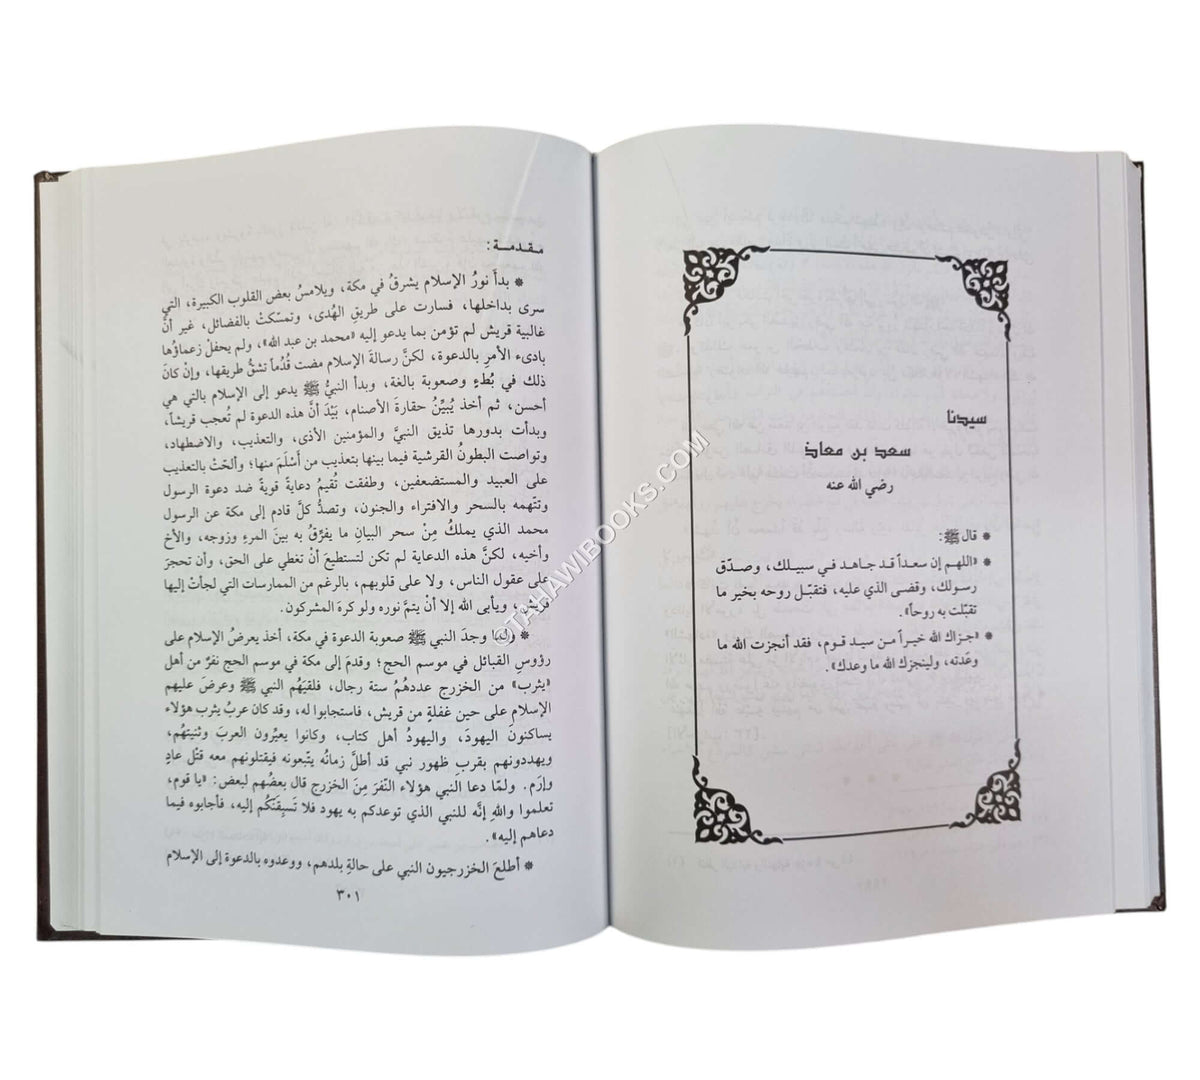 سيدنا
سعد بن معاذ
رضي الله عنه
* قال ﷺ:
* «اللهم إن سعداً قد جاهد في سبيلك، وصدّق
رسولك، وقضى الذي عليه، فتقبّل روحه بخير ما
تقبّلت به روحاً».
* «جزاك الله خيراً من سيد قوم، فقد أنجزت الله ما
وعَدته، ولينجزك الله ما وعدك».
مقدمة:
* بدأَ نورُ الإسلام يشرقُ في مكة، ويلامسُ بعض القلوب الكبيرة، التي
سرى بداخلها، فسارت على طريقِ الهُدى، وتمسّكتْ بالفضائل، غير أنَّ
غالبية قريش لم تؤمن بما يدعو إليه «محمد بن عبد الله»، ولم يحفلْ زعماؤُها
بادىء الأمرِ بالدعوة، لكنَّ رسالةَ الإسلام مضت قُدُماً تشقُّ طريقها، وإنْ كانَ
ذلك في بُطءٍ وصعوبة بالغة، وبدأ النبيُّ ﷺ يدعو إلى الإسلام بالتي هي
أحسن، ثم أخذ يُبيِّنُ حقارةَ الأصنام، بَيْدَ أنَّ هذه الدعوة لم تُعجب قريشاً،
وبدأت بدورها تذيق النبيَّ والمؤمنين الأذى، والتعذيب، والاضطهاد،
وتواصت البطونُ القرشية فيما بينها بتعذيب من أَسْلَمَ منها؛ وألحّتْ بالتعذيب
على العبيد والمستضعفين، وطفقت تُقيمُ دعايةً قويةً ضد دعوة الرسول
وتتّهمه بالسحر والافتراء والجنون، وتصدُّ كلَّ قادم إلى مكة عن الرسول
محمد الذي يملكُ مِنْ سحر البيانِ ما يفرِّقُ به بينَ المرءِ وزوجه، والأخِ
وأخيه، لكنَّ هذه الدعاية لم تكن لتستطيعَ أنْ تغطي على الحق، وأن تحجرَ
على عقول الناس، ولا على قلوبهم، بالرغم من الممارسات التي لجأتْ إليها
قريش، ويأبى الله إلا أنْ يتمَّ نوره ولو كرهَ المشركون.
* ولما وجدَ النبي ﷺ صعوبة الدعوة في مكة، أخذ يعرضُ الإسلام على
رؤوسِ القبائل في موسم الحج؛ وقدمَ إلى مكة في موسم الحج نفرٌ من أهل
«يثرب» من الخزرج عددهُمُ ستة رجال، فلقيَهُم النبي ﷺ وعرضَ عليهم
الإسلام على حين غفلةٍ من قريش، فاستجابوا له، وقد كان عربُ يثرب هؤلاء
يساكنونَ اليهودَ، واليهودُ أهل كتاب، وكانوا يعيِّرون العربَ وثنيتهُم،
ويهددونهم بقربِ ظهور نبي قد أطلَّ زمانُه يتّبعونه فيقتلونهم معه قتْل عادٍ
وإرَم. ولمّا دعا النبي هؤلاءِ النّفرَ مِنَ الخزرج قال بعضُهم لبعض: «يا قوم،
تعلموا واللهِ إنَّه للنبي الذي توعدكم به يهود فلا تَسبِقَنّكُم إليه، فأجابوه فيما
دعاهم إليه».
* أطلعَ الخزرجيون النبي على حالةِ بلدهم، ووعدوه بالدعوة إلى الإسلام
٣٠١
©TAHAWIBOOKS.COM